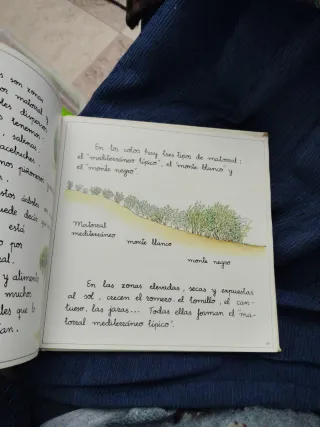 son zonas
por matorral y
bles dispersos
tenemos
sabinas,
acebuches,
nos piñoneros
estos árboles
uede decir que
está
o por
ral.
y alimento
muchos
les que l
an.
En los cotos hay tres tipos de matorral:
el "mediterráneo típico", el "monte blanco" y
el "monte negro".
Matorral
mediterráneo
monte blanco
monte negro
En las zonas elevadas, secas y expuestas
al sol, crecen el romero, el tomillo, el can-
tueso, las jaras... Todas ellas forman el "ma-
torral mediterráneo típico".